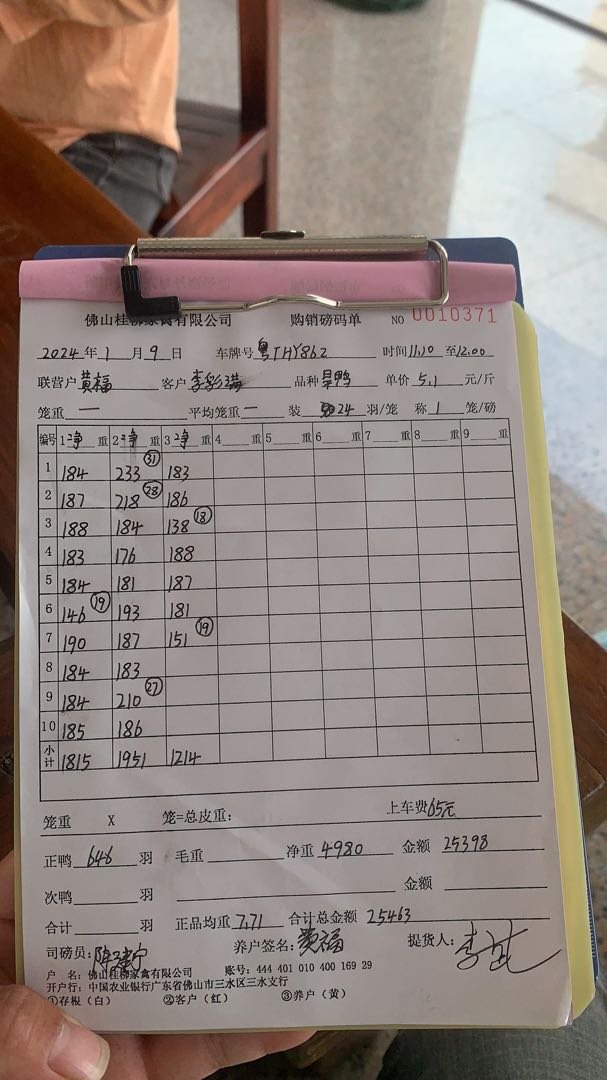 佛山桂柳家禽有限公司 购销磅码单 NO 0010371
2024年1月9日 车牌号 粤THY862 时间11.10至12.00
联营户 黄福 客户 李彩满 品种 旱鸭 单价 5.1 元/斤
笼重 一 平均笼重 一 装 24 羽/笼 称 1 笼/磅
编号 1净重 2净重 3净重 4重 5重 6重 7重 8重 9重
1 184 233 ㉛ 183
2 187 218 ㉘ 186
3 188 184 138 ⑱
4 183 176 188
5 184 181 187
6 146 ⑲ 193 181
7 190 187 151 ⑲
8 184 183
9 184 210 ㉗
10 185 186
小计 1815 1951 1214
笼重 X 笼=总皮重： 上车费 65元
正鸭 646 羽 毛重 净重 4980 金额 25398
次鸭 羽 金额
合计 羽 正品均重 7.71 合计总金额 25463
司磅员： 养户签名：黄福 提货人：
户 名：佛山桂柳家禽有限公司 账号：444 401 010 400 169 29
开户行：中国农业银行广东省佛山市三水区三水支行
①存根（白） ②客户（红） ③养户（黄）